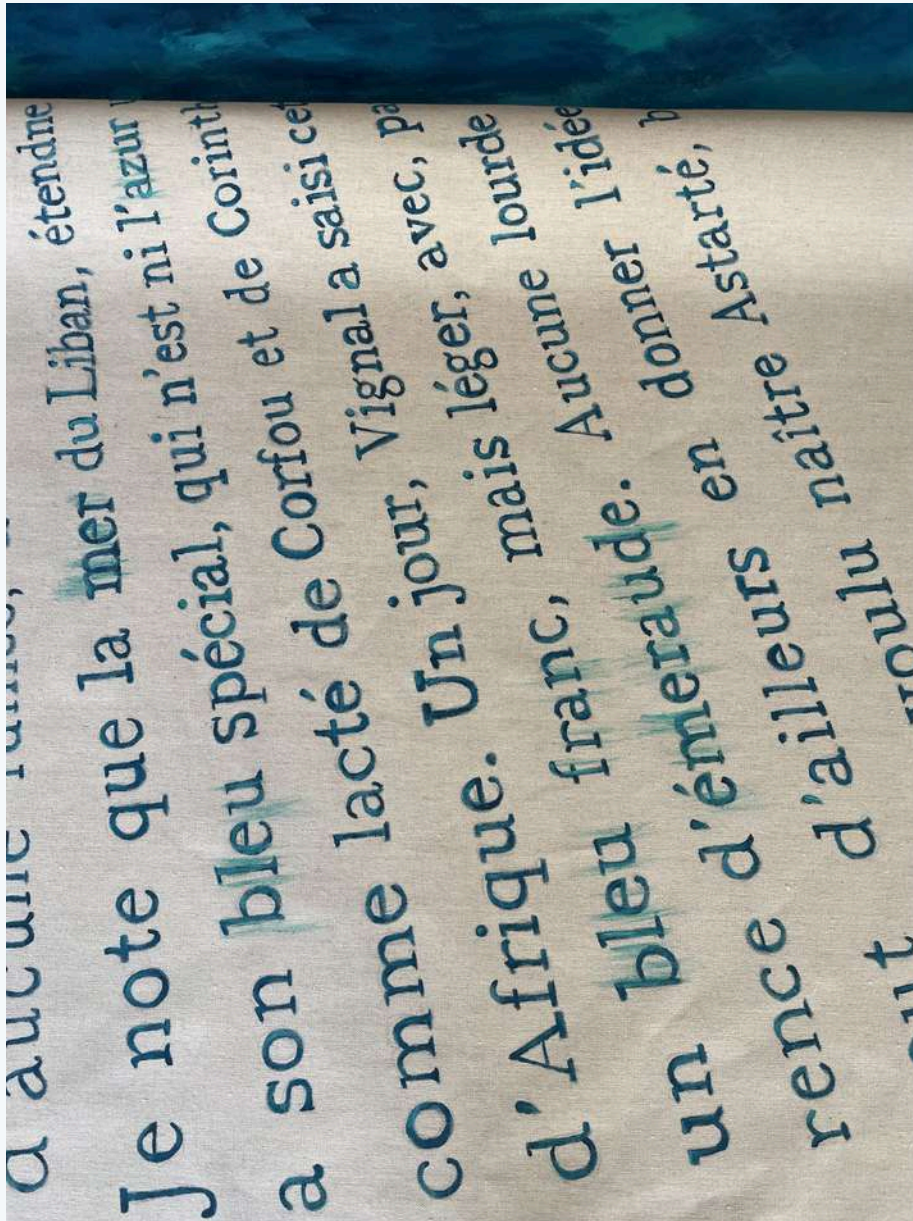 d'aucune
Je note que la mer du Liban, étendne
a son bleu spécial, qui n'est ni l'azur
comme lacté de Corfou et de Corinth
d'Afrique. Un jour, Vignal a saisi cet
un bleu franc, mais léger, avec, pa
rence d'émeraude. Aucune lourde
d'ailleurs en donner l'idée
naître Astarté, b